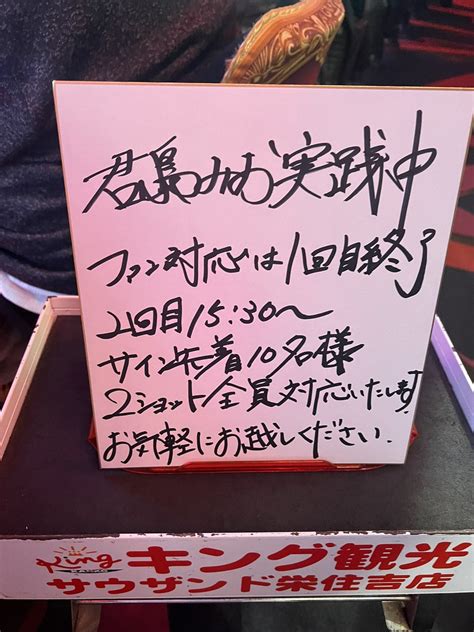 君島みお実践中
ファン対応は1回目終了
2回目15:30～
サイン先着10名様
2ショット全員対応いたします!
お気軽にお越しください.
King キング観光
サウザンド栄住吉店